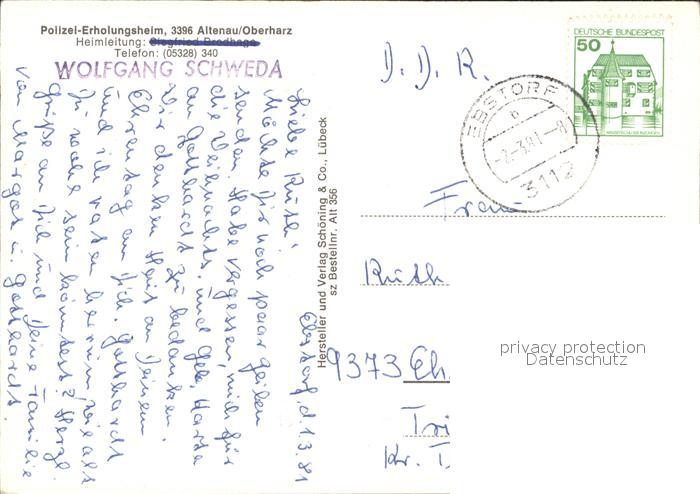 Polizei-Erholungsheim, 3396 Altenau/Oberharz
Heimleitung: Siegfried Brodhage
Telefon: (05328) 340
WOLFGANG SCHWEDA
Ebstorf, d. 1.3.81
Liebe Ruth!
Möchte Dir noch paar Zeilen
senden. Habe vergessen, mich für
die Weihnachts- und Geb. Karte
an Gotthardt zu bedanken.
Wir denken heut an Deinem
Ehrentag an Dich. Gotthardt
und ich raten herrum, wie alt
Du wohl sein könntest? Herzl.
Grüße an Dich und Deine Familie
von Margot u. Gotthardt.
Hersteller und Verlag Schöning & Co., Lübeck
sz Bestellnr. Alt 356
D. D. R.
DEUTSCHE BUNDESPOST
50
WASSERSCHLOSS INZLINGEN
EBSTORF
b
-2.-3.81.-8
3112
Frau
Ruth
9373 Eh
Tri
Kr.
privacy protection
Datenschutz